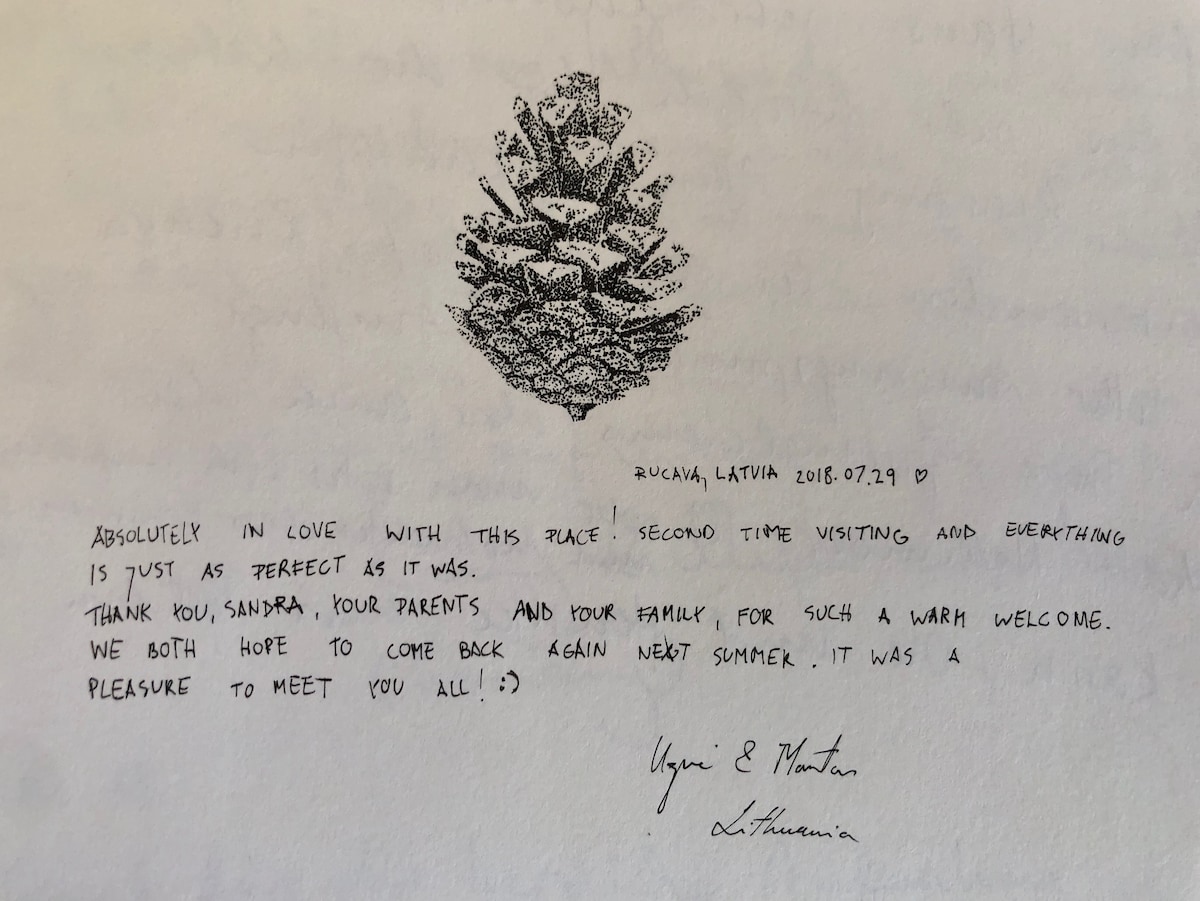 RUCAVA, LATVIA 2018.07.29 ♡
ABSOLUTELY IN LOVE WITH THIS PLACE! SECOND TIME VISITING AND EVERYTHING
IS JUST AS PERFECT AS IT WAS.
THANK YOU, SANDRA, YOUR PARENTS AND YOUR FAMILY, FOR SUCH A WARM WELCOME.
WE BOTH HOPE TO COME BACK AGAIN NEXT SUMMER. IT WAS A
PLEASURE TO MEET YOU ALL! :)
& Mantas
Lithuania